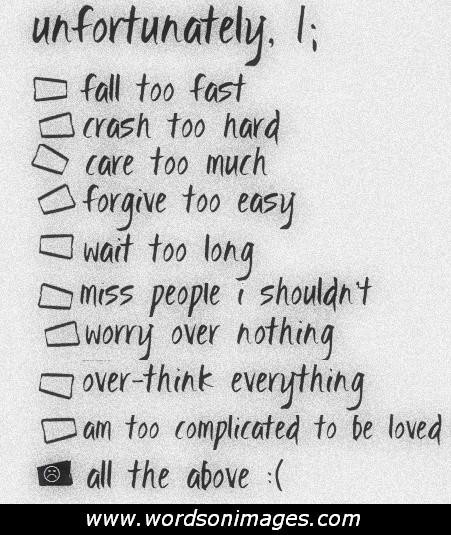 unfortunately, I;
fall too fast
crash too hard
care too much
forgive too easy
wait too long
miss people i shouldn't
worry over nothing
over-think everything
am too complicated to be loved
all the above :(
www.wordsonimages.com